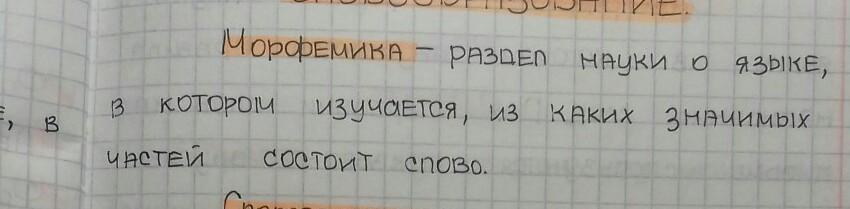 СЛОВООБРАЗОВАНИЕ.
Морфемика – раздел науки о языке,
в котором изучается, из каких значимых
в
частей состоит слово.